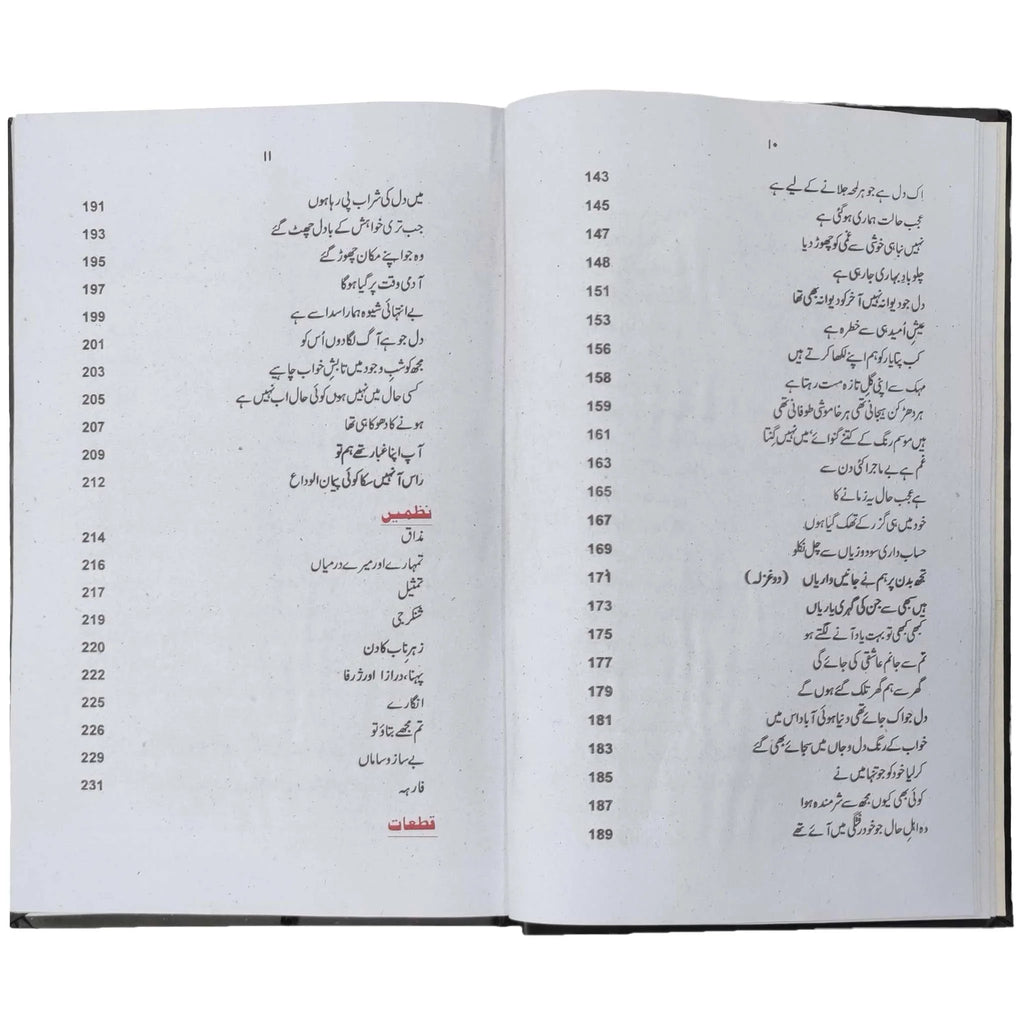 ۱۰
اِک دل ہے جو ہر لمحہ جلانے کے لیے ہے 143
عجب حالت ہماری ہو گئی ہے 145
نہیں نباہی خوشی سے غمی کو چھوڑ دیا 147
چلو بادِ بہاری جا رہی ہے 148
دل جو دیوانہ نہیں آخر کو دیوانہ بھی تھا 151
عیشِ اُمید ہی سے خطرہ ہے 153
کب پتا یار کو ہم اپنے لکھا کرتے ہیں 156
مہک سے اپنی گلِ تازہ مست رہتا ہے 158
ہر دھڑکن ہیجانی تھی ہر خاموشی طوفانی تھی 159
ہیں موسم رنگ کے کتنے گنوائے میں نہیں گِنتا 161
غم ہے بے ماجرا کئی دن سے 163
ہے عجب حال یہ زمانے کا 165
خود میں ہی گزر کے تھک گیا ہوں 167
حساب داریِ سود و زیاں سے چل نکلو 169
تجھ بدن پر ہم نے جانیں واریاں (دو غزلہ) 171
ہیں سبھی سے جن کی گہری یاریاں 173
کبھی کبھی تو بہت یاد آنے لگتے ہو 175
تم سے جانم عاشقی کی جائے گی 177
گھر سے ہم گھر تلک گئے ہوں گے 179
دل جو اک جائے تھی دنیا ہوئی آباد اس میں 181
خواب کے رنگ دل و جاں میں سجائے بھی گئے 183
کر لیا خود کو جو تنہا میں نے 185
کوئی بھی کیوں مجھ سے شرمندہ ہوا 187
وہ اہلِ حال جو خود رفتگی میں آئے تھے 189
۱۱
میں دل کی شراب پی رہا ہوں 191
جب تری خواہش کے بادل چھٹ گئے 193
وہ جو اپنے مکان چھوڑ گئے 195
آدمی وقت پر گیا ہوگا 197
بے انتہائی شیوہ ہمارا سدا سے ہے 199
دل جو ہے آگ لگا دوں اُس کو 201
مجھ کو شبِ وجود میں تابشِ خواب چاہیے 203
کسی حال میں نہیں ہوں کوئی حال اب نہیں ہے 205
ہونے کا دھوکا ہی تھا 207
آپ اپنا غبار تھے ہم تو 209
راس آ نہیں سکا کوئی پیمان الوداع 212
نظمیں
مذاق 214
تمہارے اور میرے درمیاں 216
تمثیل 217
شنکر جی 219
زہرِ ناب کا دن 220
پہنا، درازا اور ژرفا 222
انگارے 225
تم مجھے بتاؤ تو 226
بے ساز و ساماں 229
فارہہ 231
قطعات